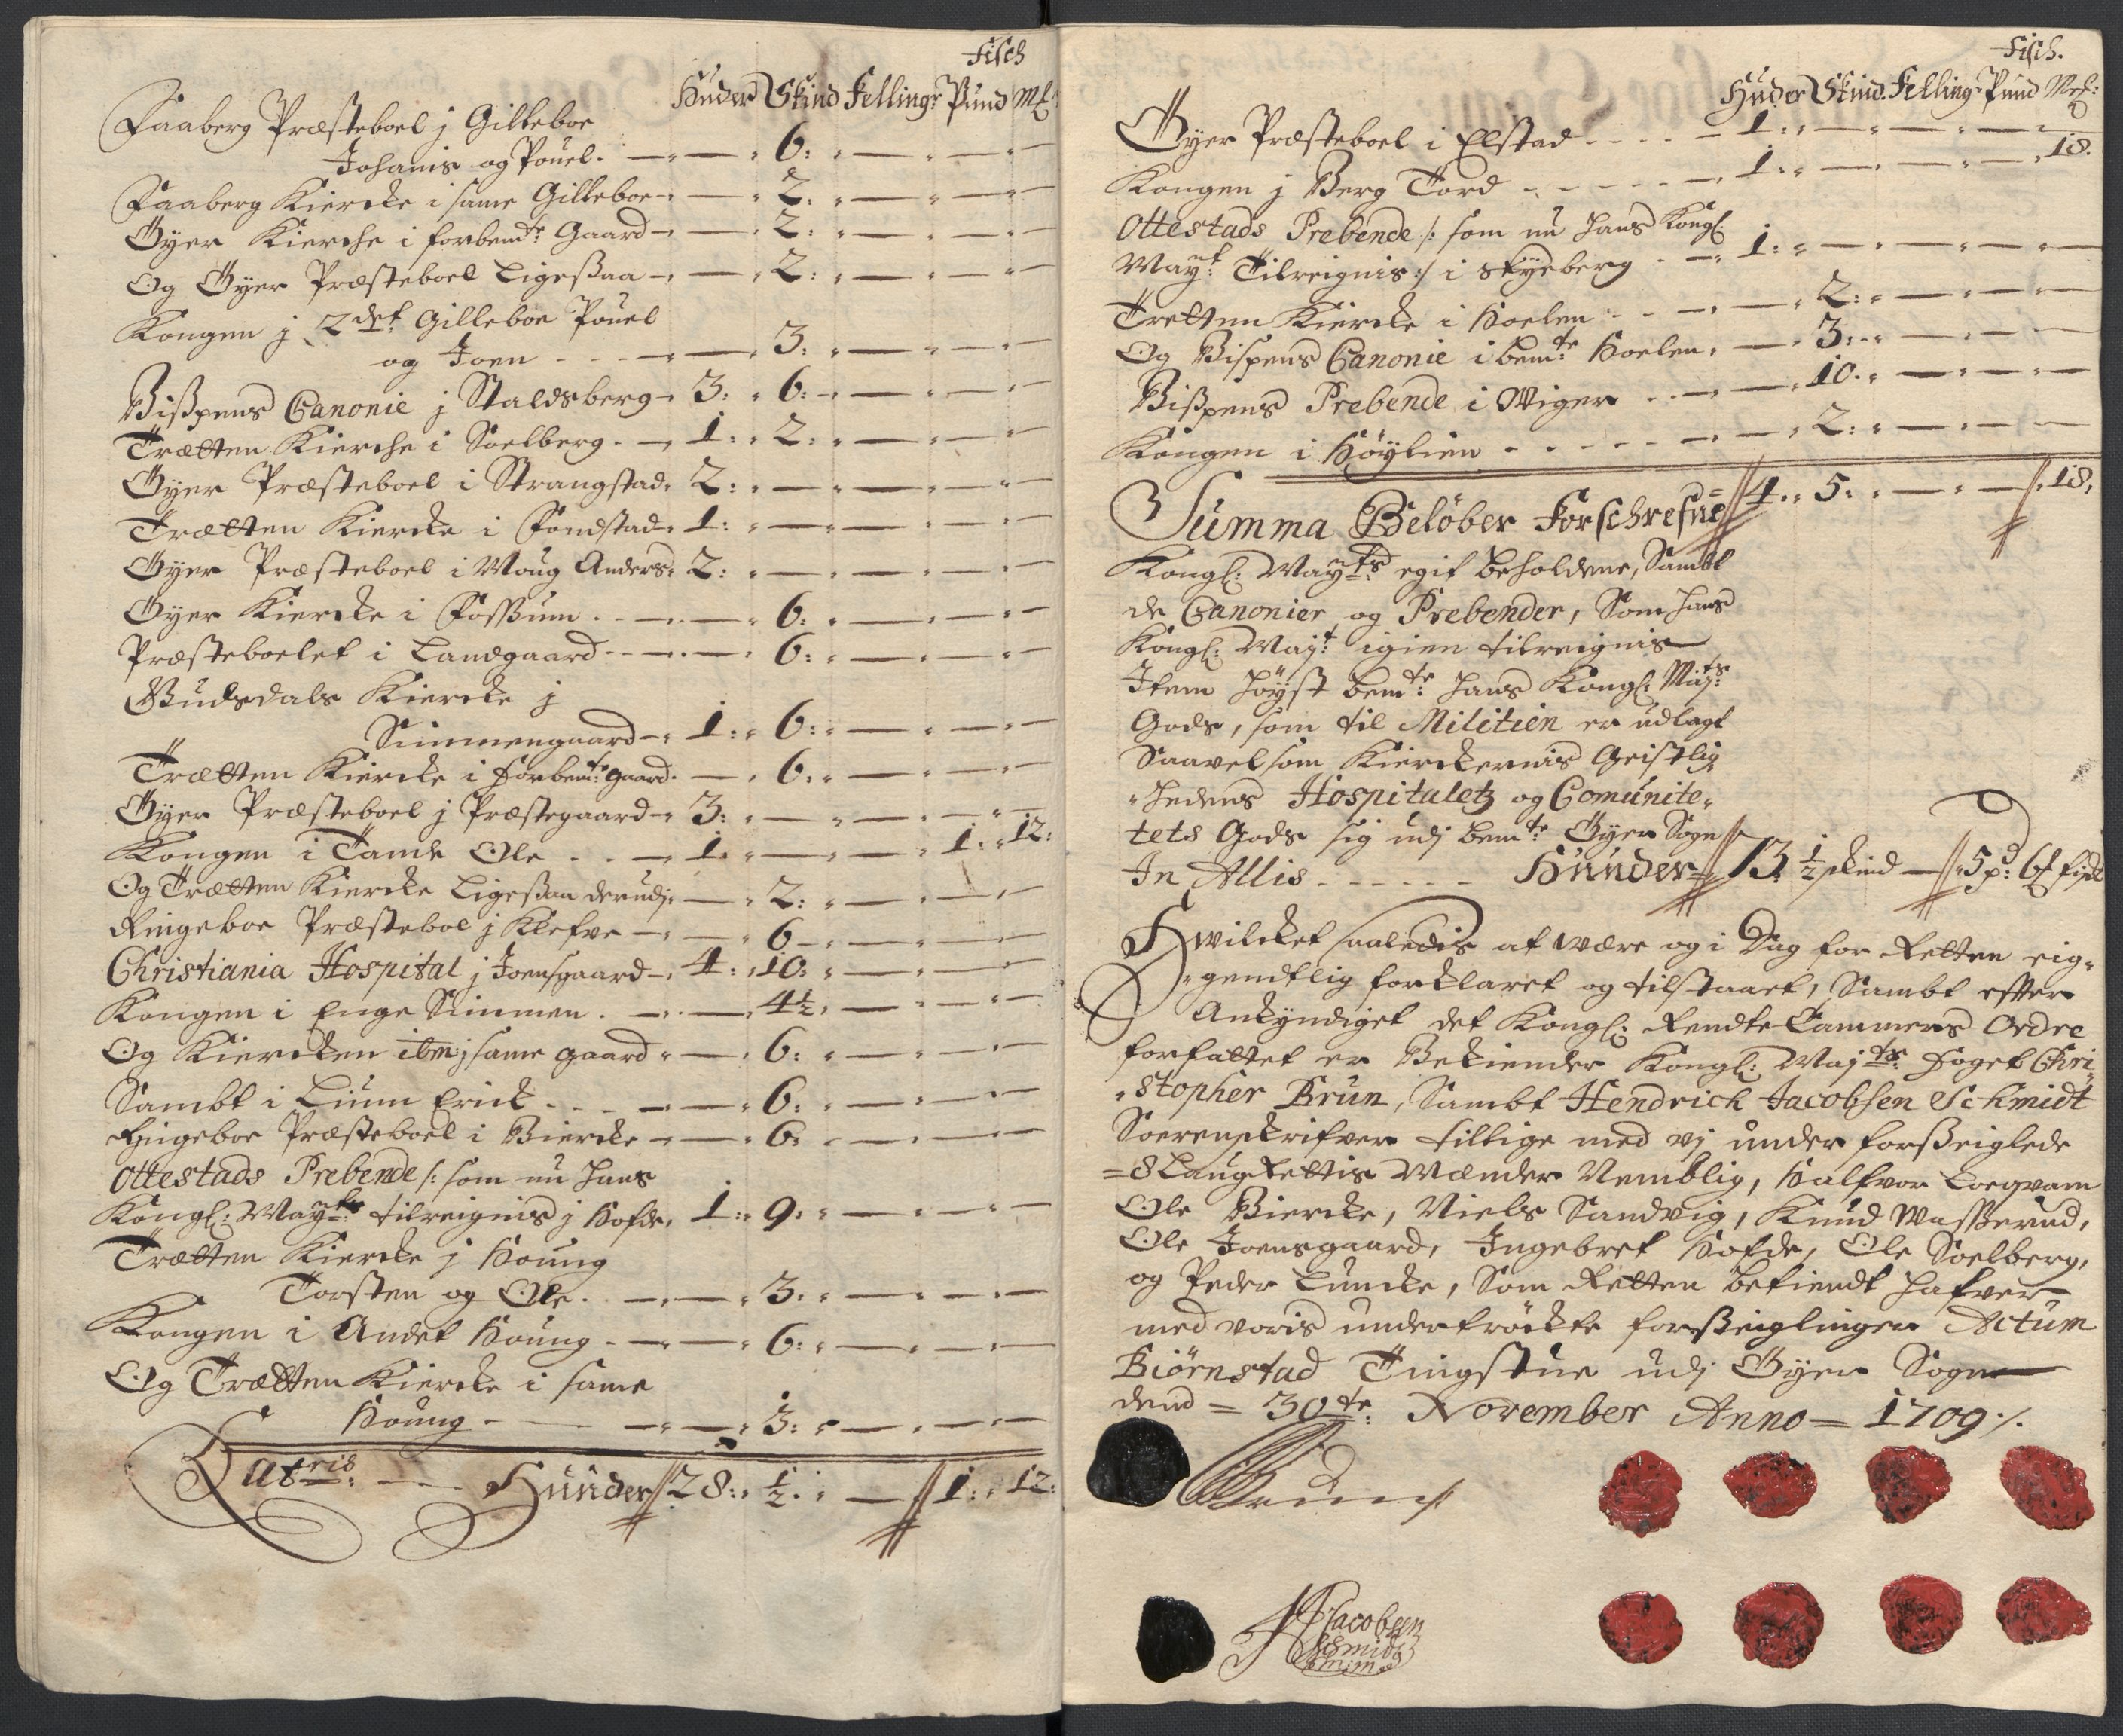 Fisch
Huder Skind Felling: Pund Mk:
Faaberg Præsteboel j Gilleboe
Johanis og Pouel. — — 6: — — —
Faaberg Kiercke i same Gilleboe — — 2: — — —
Öyer Kierche i forbemte: Gaard — — 2: — — —
Og Öyer Præsteboel Ligeßaa — — 2: — — —
Kongen j 2det: Gilleboe Pouel
og Joen - - - — — 3: — — —
Bißpens Canonie j Staldsberg — 3: 6: — — —
Trætten Kierche i Soelberg. — 1: 2: — — —
Öyer Præsteboel i Strangstad. 2: — — — —
Trætten Kiercke i Fondstad. 1: — — — —
Öyer Præsteboel i Moug Anders. 2: — — — —
Öyer Kiercke i Foßum. — — 6: — — —
Præsteboelet i Landgaard - - — — 6: — — —
Gudsdals Kiercke j
Simmengaard — 1: 6: — — —
Trætten Kiercke i forbemte: gaard. — 6: — — —
Öyer Præsteboel j Præstegaard — 3: — — — —
Kongen i Tande Ole - - — 1. — — 1: 12:
Og Trætten Kiercke Ligeßaa derudj — 2: — — —
Ringeboe Præsteboel j Klefve — — 6 — — —
Christiania Hospital j Joensgaard — 4: 10: — — —
Kongen i Enge Simmen. — — 4½ — — —
Og Kiercken ibm j same gaard — 6: — — —
Sambt i Lunn Erick - - - — — 6: — — —
Ringeboe Præsteboel i Biercke — — 6: — — —
Ottestads Prebende /: som nu Hans
Kongl: Mayts: tilreignis j Hofde, 1: 9: — — —
Trætten Kiercke j Houng
Torsten og Ole. — — 3: — — —
Kongen i Andet Houng - — — 6: — — —
Og Trætten Kiercke i same
Houng - — — — 3: — — —
Latris: - - - Hunder // 28: ½: — // 1: 12:
Fisch.
Huder Skind. Felling: Pund Mrk:
Öyer Præsteboel i Elstad - - - - 1: — — — —
Kongen j Berg Tord - - - - - 1: — — — 18.
Ottestads Prebende /: som nu Hans Kongl:
Mayt: Tilreignis :/ i Skyeberg - — 1: — — — —
Tretten Kiercke i Hoelen - - — — 2: — — —
Og Bispens Canonie i bemte: Hoelen, — 3: — — —
Bißpens Prebende i Wiger - - — — 10. — — —
Kongen i Höylien - - - - - — — 2: — — —
Summa Belöber Forschrefne // 4: 5: — — // 18,
Kongl: Mayts: egit beholdene, Sambt
de Canonier og Prebender, Som Hans
Kongl: Mayt: igien tilreignis
Item Höyst bemte: Hans Kongl: Mayts:
Gods, som til Militien er udlagt
Saavelsom Kierckernis Geistlig-
-hedens Hospitaletz og Comunite-
tets Gods sig udj bemte Öyer Sogn
In Allis - - - - - Hunder // 73. ½ skind — // 5 pd: 6 # fisk
Hvilcket saaledis at være og i Dag for Retten eig-
-gendtlig forklaret og tilstaaet, Sambt effter
Ankyndiget det Kongl: Rendte Cammers Ordre
forfattet er Bekiender Kongl: Mayts: foget Chri-
-stopher Brun, Sambt Hendrich Jacobsen Schmidt
Sorenskrifver tillige med vj under forßeiglede
=8 Laug Rettis Mænder Nemblig, Halfvor Loegvam
Ole Biercke, Niels Sandvig, Knud Waßerud,
Ole Joensgaard, Ingebret Hofde, Ole Soelberg,
og Peder Luncke, Som Retten betiendt Hafver
med voris undertröckte forßeiglinger Actum
Biörnstad Tingstue udj Öyer Sogn
dend = 30te: November Anno = 1709 ./.
CBrun
HJacobsen
Schmidt